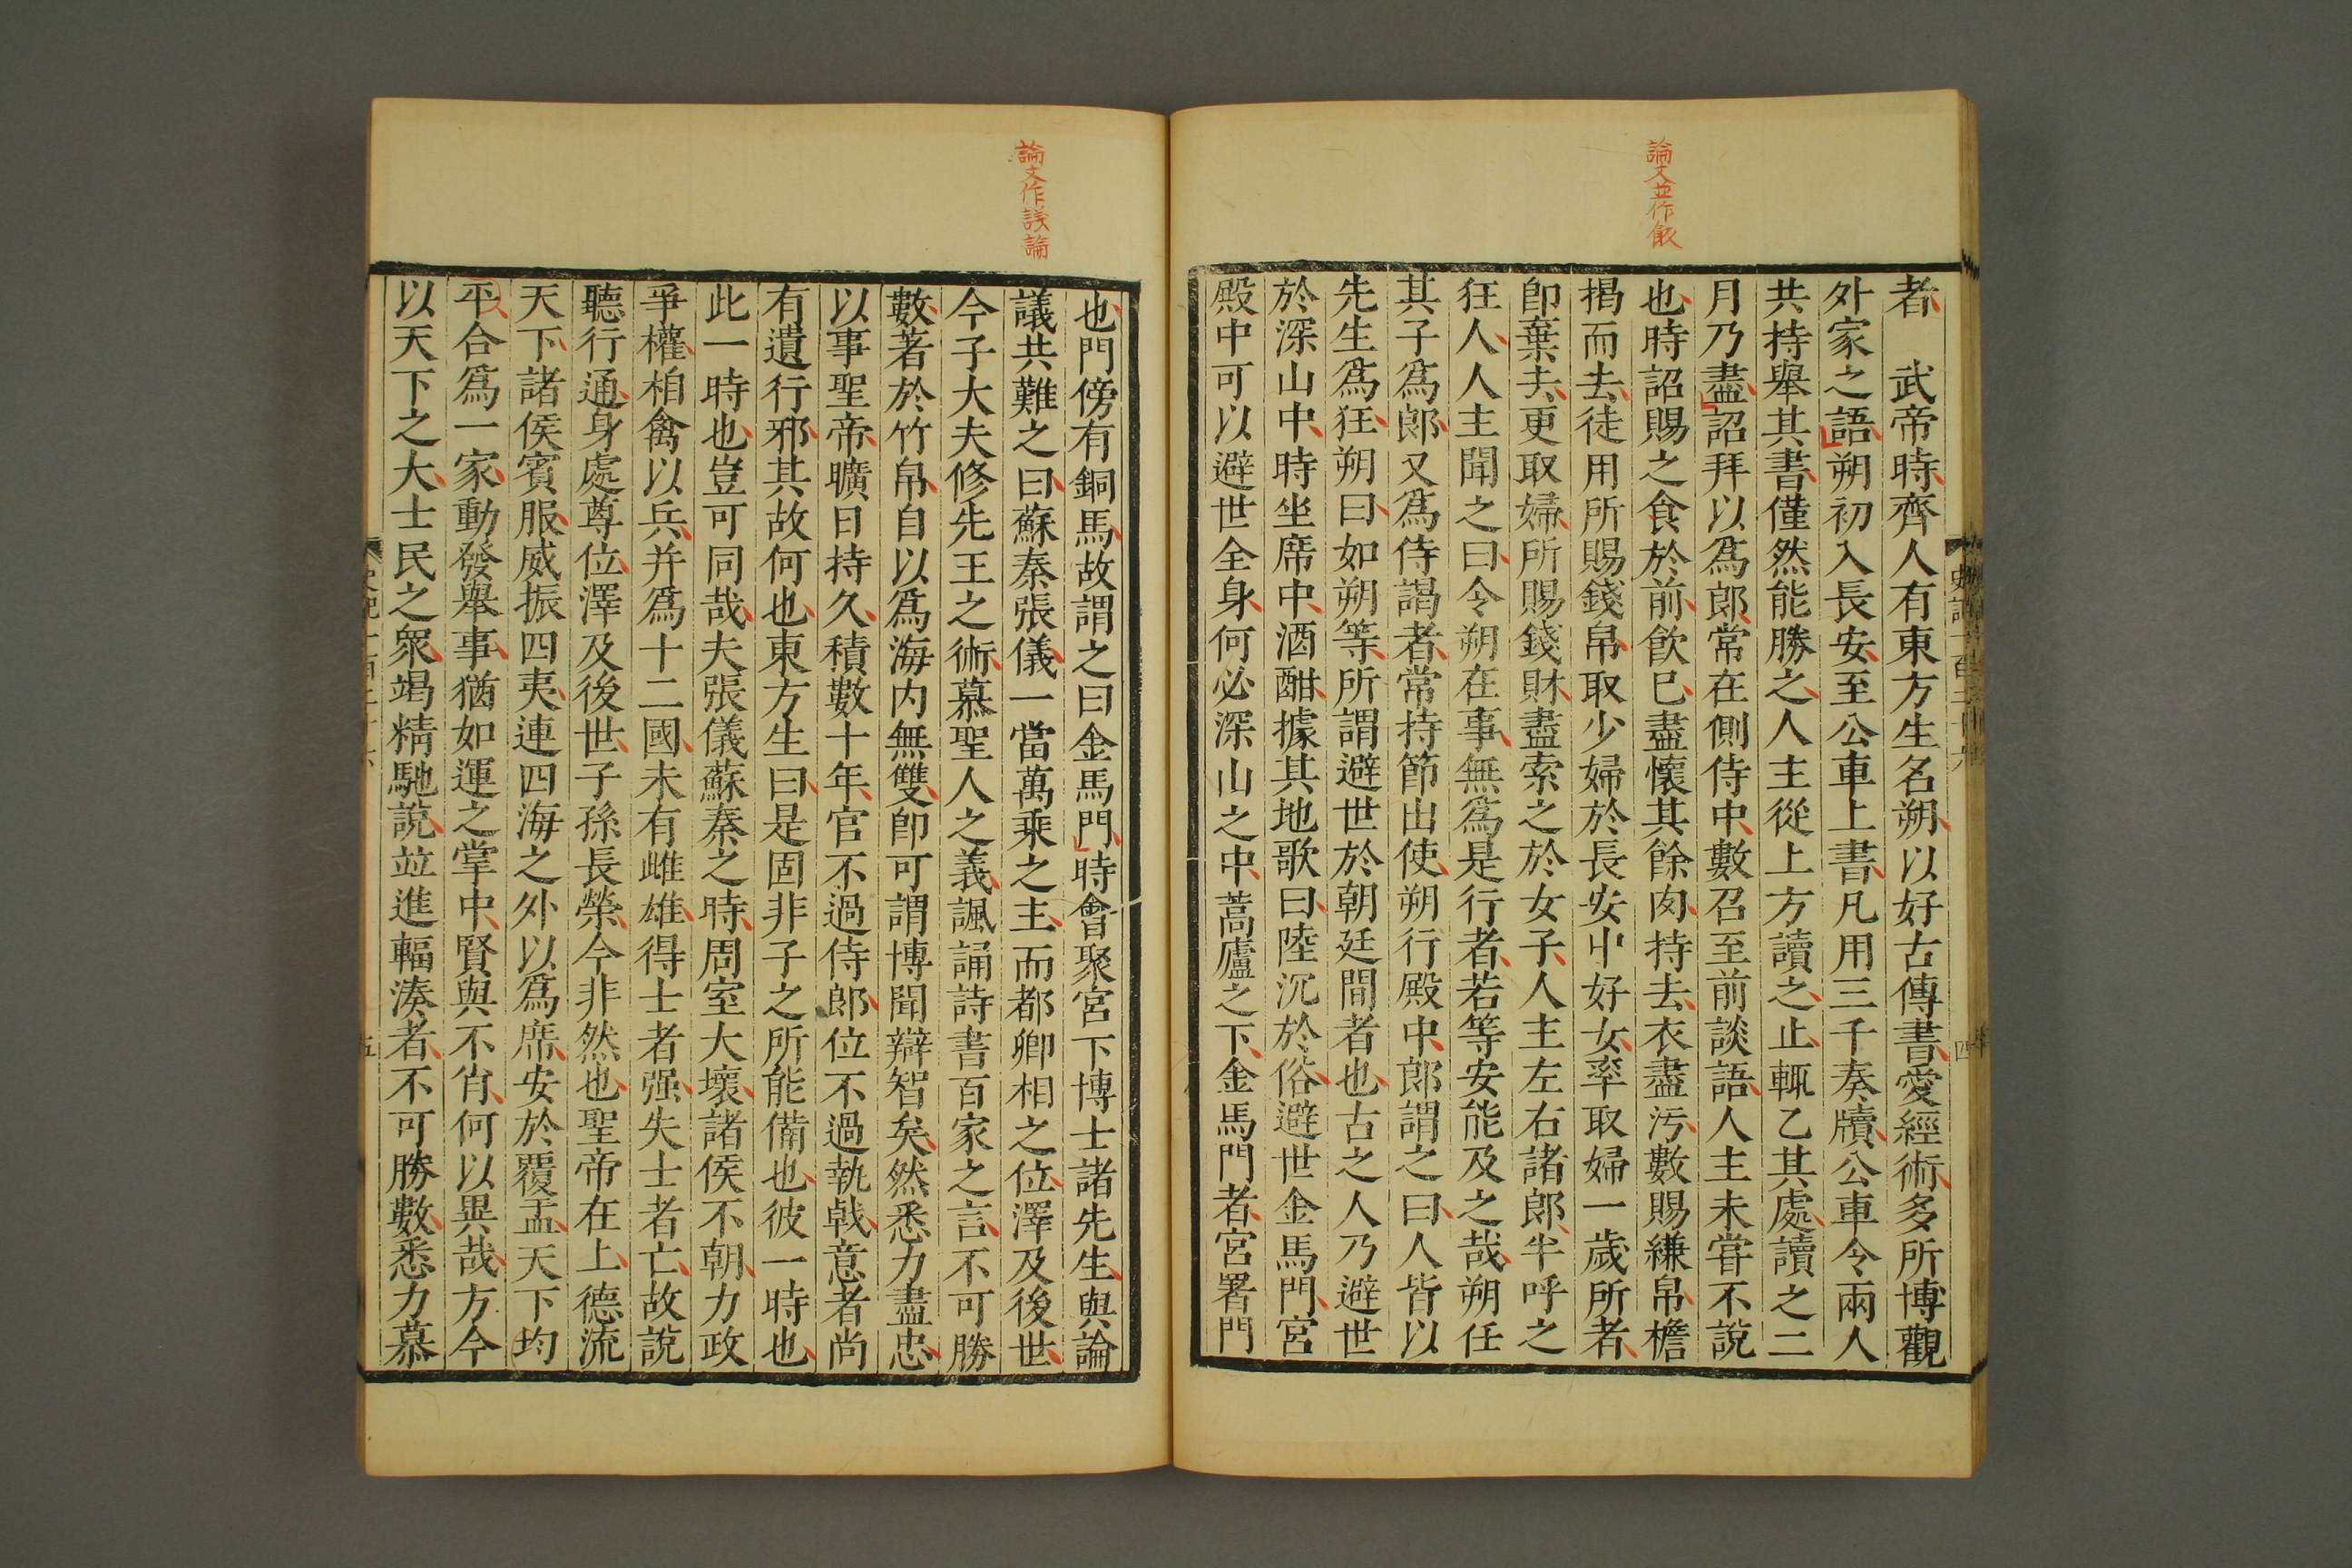 論文並作飯
者　武帝時齊人有東方生名朔以好古傳書愛經術多所博觀
外家之語朔初入長安至公車上書凡用三千奏牘公車令兩人
共持舉其書僅然能勝之人主從上方讀之止輒乙其處讀之二
月乃盡詔拜以爲郎常在側侍中數召至前談語人主未甞不說
也時詔賜之食於前飮已盡懷其餘肉持去衣盡污數賜縑帛檐
揭而去徒用所賜錢帛取少婦於長安中好女率取婦一歲所者
卽棄去更取婦所賜錢財盡索之於女子人主左右諸郎半呼之
狂人人主聞之曰令朔在事無爲是行者若等安能及之哉朔任
其子爲郎又爲侍謁者常持節出使朔行殿中郎謂之曰人皆以
先生爲狂朔曰如朔等所謂避世於朝廷間者也古之人乃避世
於深山中時坐席中酒酣據其地歌曰陸沉於俗避世金馬門宮
殿中可以避世全身何必深山之中蒿廬之下金馬門者宮署門
史記一百二十六
四
論文作議論
也門傍有銅馬故謂之曰金馬門時會聚宮下博士諸先生與論
議共難之曰蘇秦張儀一當萬乘之主而都卿相之位澤及後世
今子大夫修先王之術慕聖人之義諷誦詩書百家之言不可勝
數著於竹帛自以爲海内無雙卽可謂博聞辯智矣然悉力盡忠
以事聖帝曠日持久積數十年官不過侍郎位不過執戟意者尚
有遺行邪其故何也東方生曰是固非子之所能備也彼一時也
此一時也豈可同哉夫張儀蘇秦之時周室大壞諸侯不朝力政
爭權相禽以兵并爲十二國未有雌雄得士者强失士者亡故說
聽行通身處尊位澤及後世子孫長榮今非然也聖帝在上德流
天下諸侯賓服威振四夷連四海之外以爲席安於覆盂天下均
平合爲一家動發舉事猶如運之掌中賢與不肖何以異哉方今
以天下之大士民之衆竭精馳說並進輻湊者不可勝數悉力慕
五